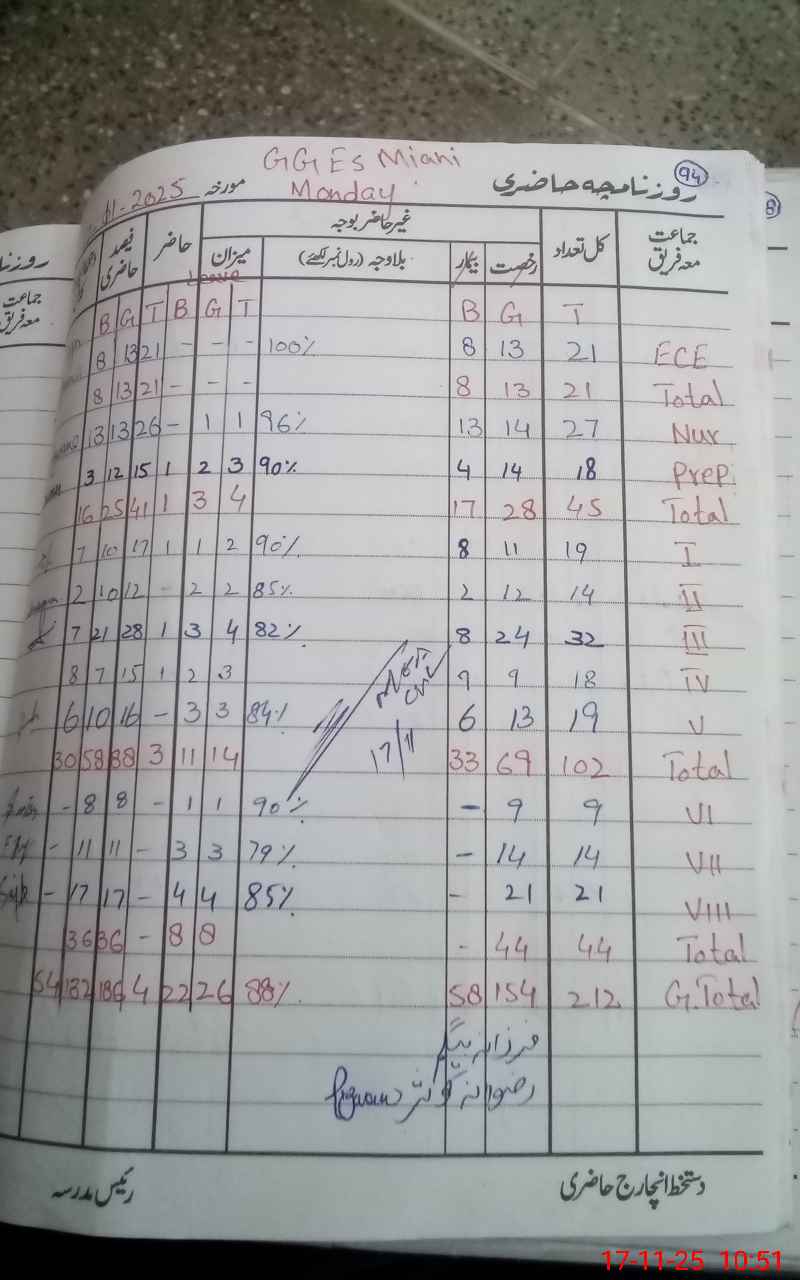 94
GGES Miani
روزنامچہ حاضری Monday مورخہ 11-2025
جماعت معہ فریق کل تعداد غیر حاضر بوجہ حاضر فیصد حاضری
رخصت بیمار بلاوجہ (رول نمبر لکھئے) میزان
Leave
B G T B G T B G T
8 13 21 - - - 100% 8 13 21 ECE
8 13 21 - - - 8 13 21 Total
13 13 26 - 1 1 96% 13 14 27 Nur
3 12 15 1 2 3 90% 4 14 18 Prep
16 25 41 1 3 4 17 28 45 Total
7 10 17 1 1 2 90% 8 11 19 I
2 10 12 - 2 2 85% 2 12 14 II
7 21 28 1 3 4 82% 8 24 32 III
8 7 15 1 2 3 9 9 18 IV
6 10 16 - 3 3 84% 6 13 19 V
17/11
30 58 88 3 11 14 33 69 102 Total
- 8 8 - 1 1 90% - 9 9 VI
- 11 11 - 3 3 79% - 14 14 VII
- 17 17 - 4 4 85% - 21 21 VIII
36 36 - 8 8 - 44 44 Total
54 132 186 4 22 26 88% 58 154 212 G.Total
فرزانہ بیگم
رضوانہ کوثر
دستخط انچارج حاضری رئیس مدرسہ
روزنا
جماعت
معہ فریق
17-11-25 10:51